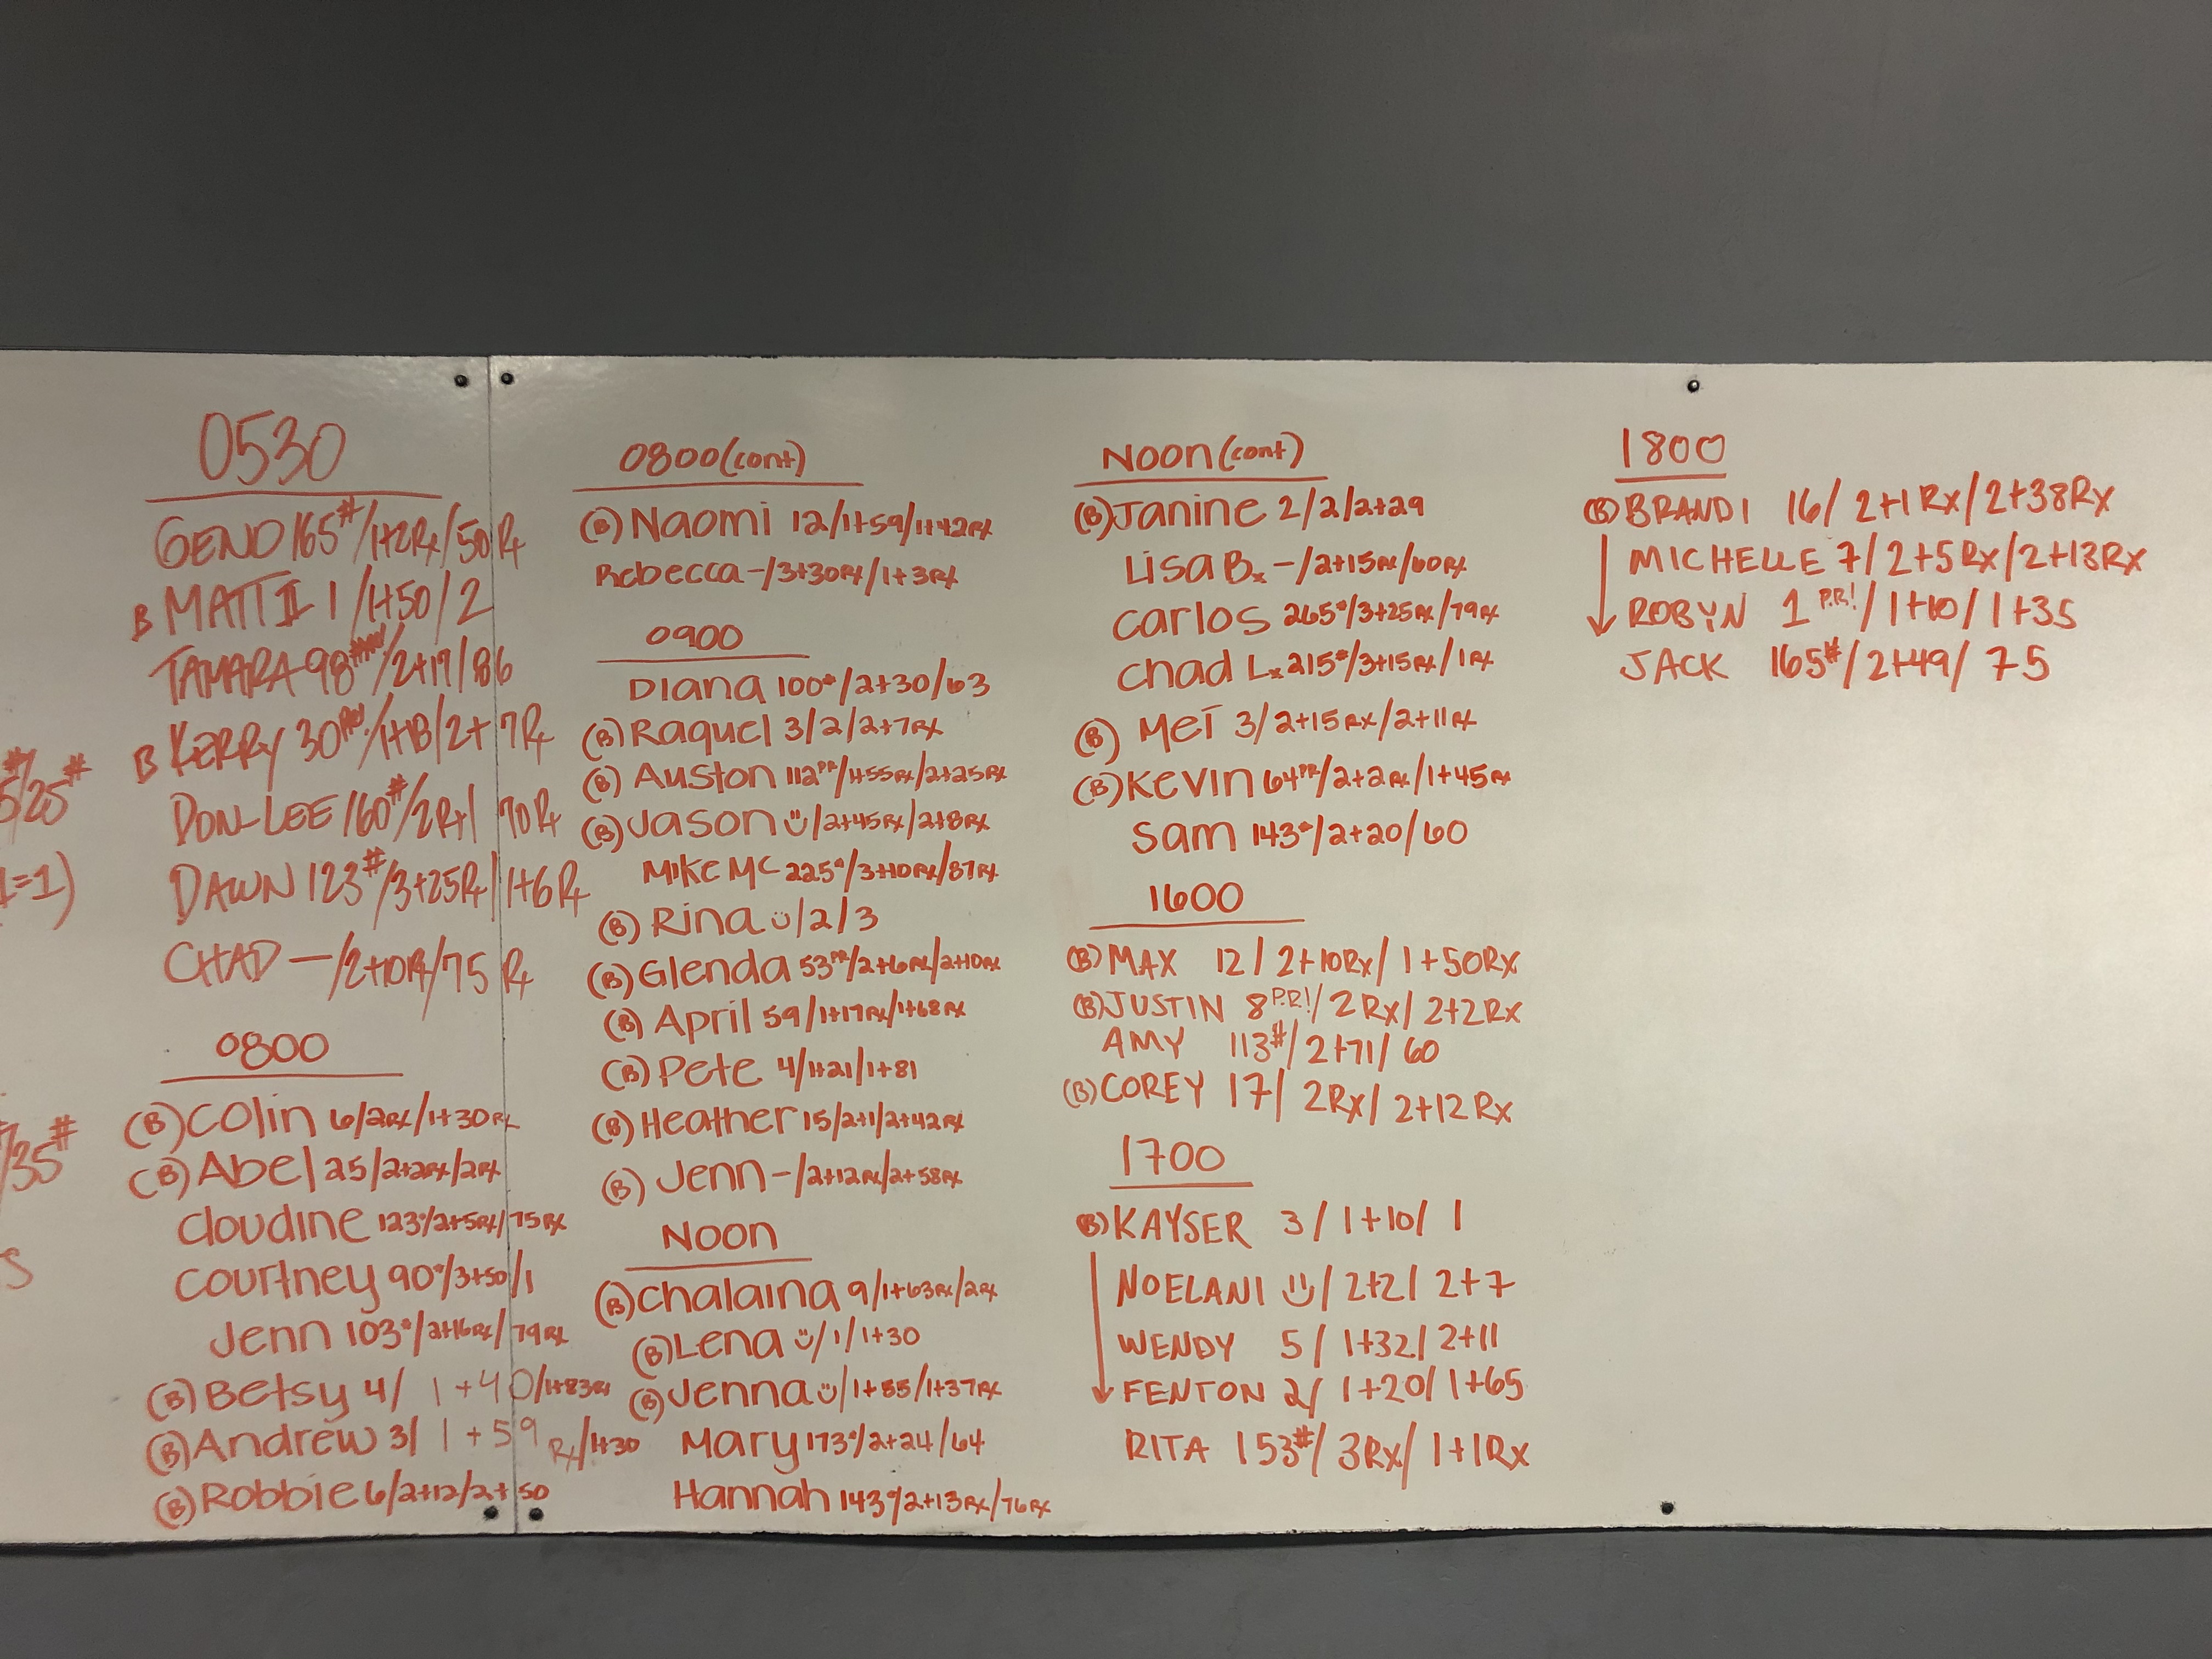 0530
GENO 165#/1+2Rx/50 Rx
B MATT II 1/1+50/2
TAMARA 98#/2+17/86
B KERRY 30 PR!/1+18/2+7Rx
DON-LEE 160#/2Rx/70Rx
DAWN 123#/3+25Rx/1+6Rx
CHAD —/2+10Rx/75 Rx
5/25#
=1)
0800
(B) Colin 6/2Rx/1+30Rx
(B) Abel 25/2+2Rx/2Rx
/35#
Cloudine 123#/2+5Rx/75Rx
S
Courtney 90#/3+50/1
Jenn 103#/2+16Rx/79Rx
(B) Betsy 4/1+40/1+83Rx
(B) Andrew 3/1+59 Rx/1+30
(B) Robbie 6/2+12/2+50
0800 (cont)
(B) Naomi 12/1+59/1+42Rx
Rebecca -/3+30Rx/1+3Rx
0900
Diana 100#/2+30/63
(B) Raquel 3/2/2+7Rx
(B) Auston 112PR/1+55Rx/2+25Rx
(B) Jason /2+45Rx/2+8Rx
Mike Mc 225#/3+10Rx/87Rx
(B) Rina /2/3
(B) Glenda 53PR/2+6Rx/2+10Rx
(B) April 59/1+17Rx/1+68Rx
(B) Pete 4/1+21/1+81
(B) Heather 15/2+1/2+42Rx
(B) Jenn -/2+12Rx/2+58Rx
Noon
(B) Chalaina 9/1+63Rx/2Rx
(B) Lena /1/1+30
(B) Jenna /1+55/1+37Rx
Mary 173#/2+24/64
Hannah 143#/2+13Rx/76Rx
Noon (cont)
(B) Janine 2/2/2+29
Lisa B. -/2+15Rx/60Rx
Carlos 265#/3+25Rx/79Rx
Chad L. 215#/3+15Rx/1Rx
(B) Mei 3/2+15Rx/2+11Rx
(B) Kevin 64PR/2+2Rx/1+45Rx
Sam 143#/2+20/60
1600
(B) MAX 12/2+10Rx/1+50Rx
(B) JUSTIN 8 P.R!/2Rx/2+2Rx
AMY 113#/2+71/60
(B) COREY 17/2Rx/2+12Rx
1700
(B) KAYSER 3/1+10/1
NOELANI /2+2/2+7
WENDY 5/1+32/2+11
FENTON 2/1+20/1+65
RITA 153#/3Rx/1+1Rx
1800
(B) BRANDI 16/2+1Rx/2+38Rx
MICHELLE 7/2+5Rx/2+13Rx
ROBYN 1 P.R!/1+10/1+35
JACK 165#/2+49/75